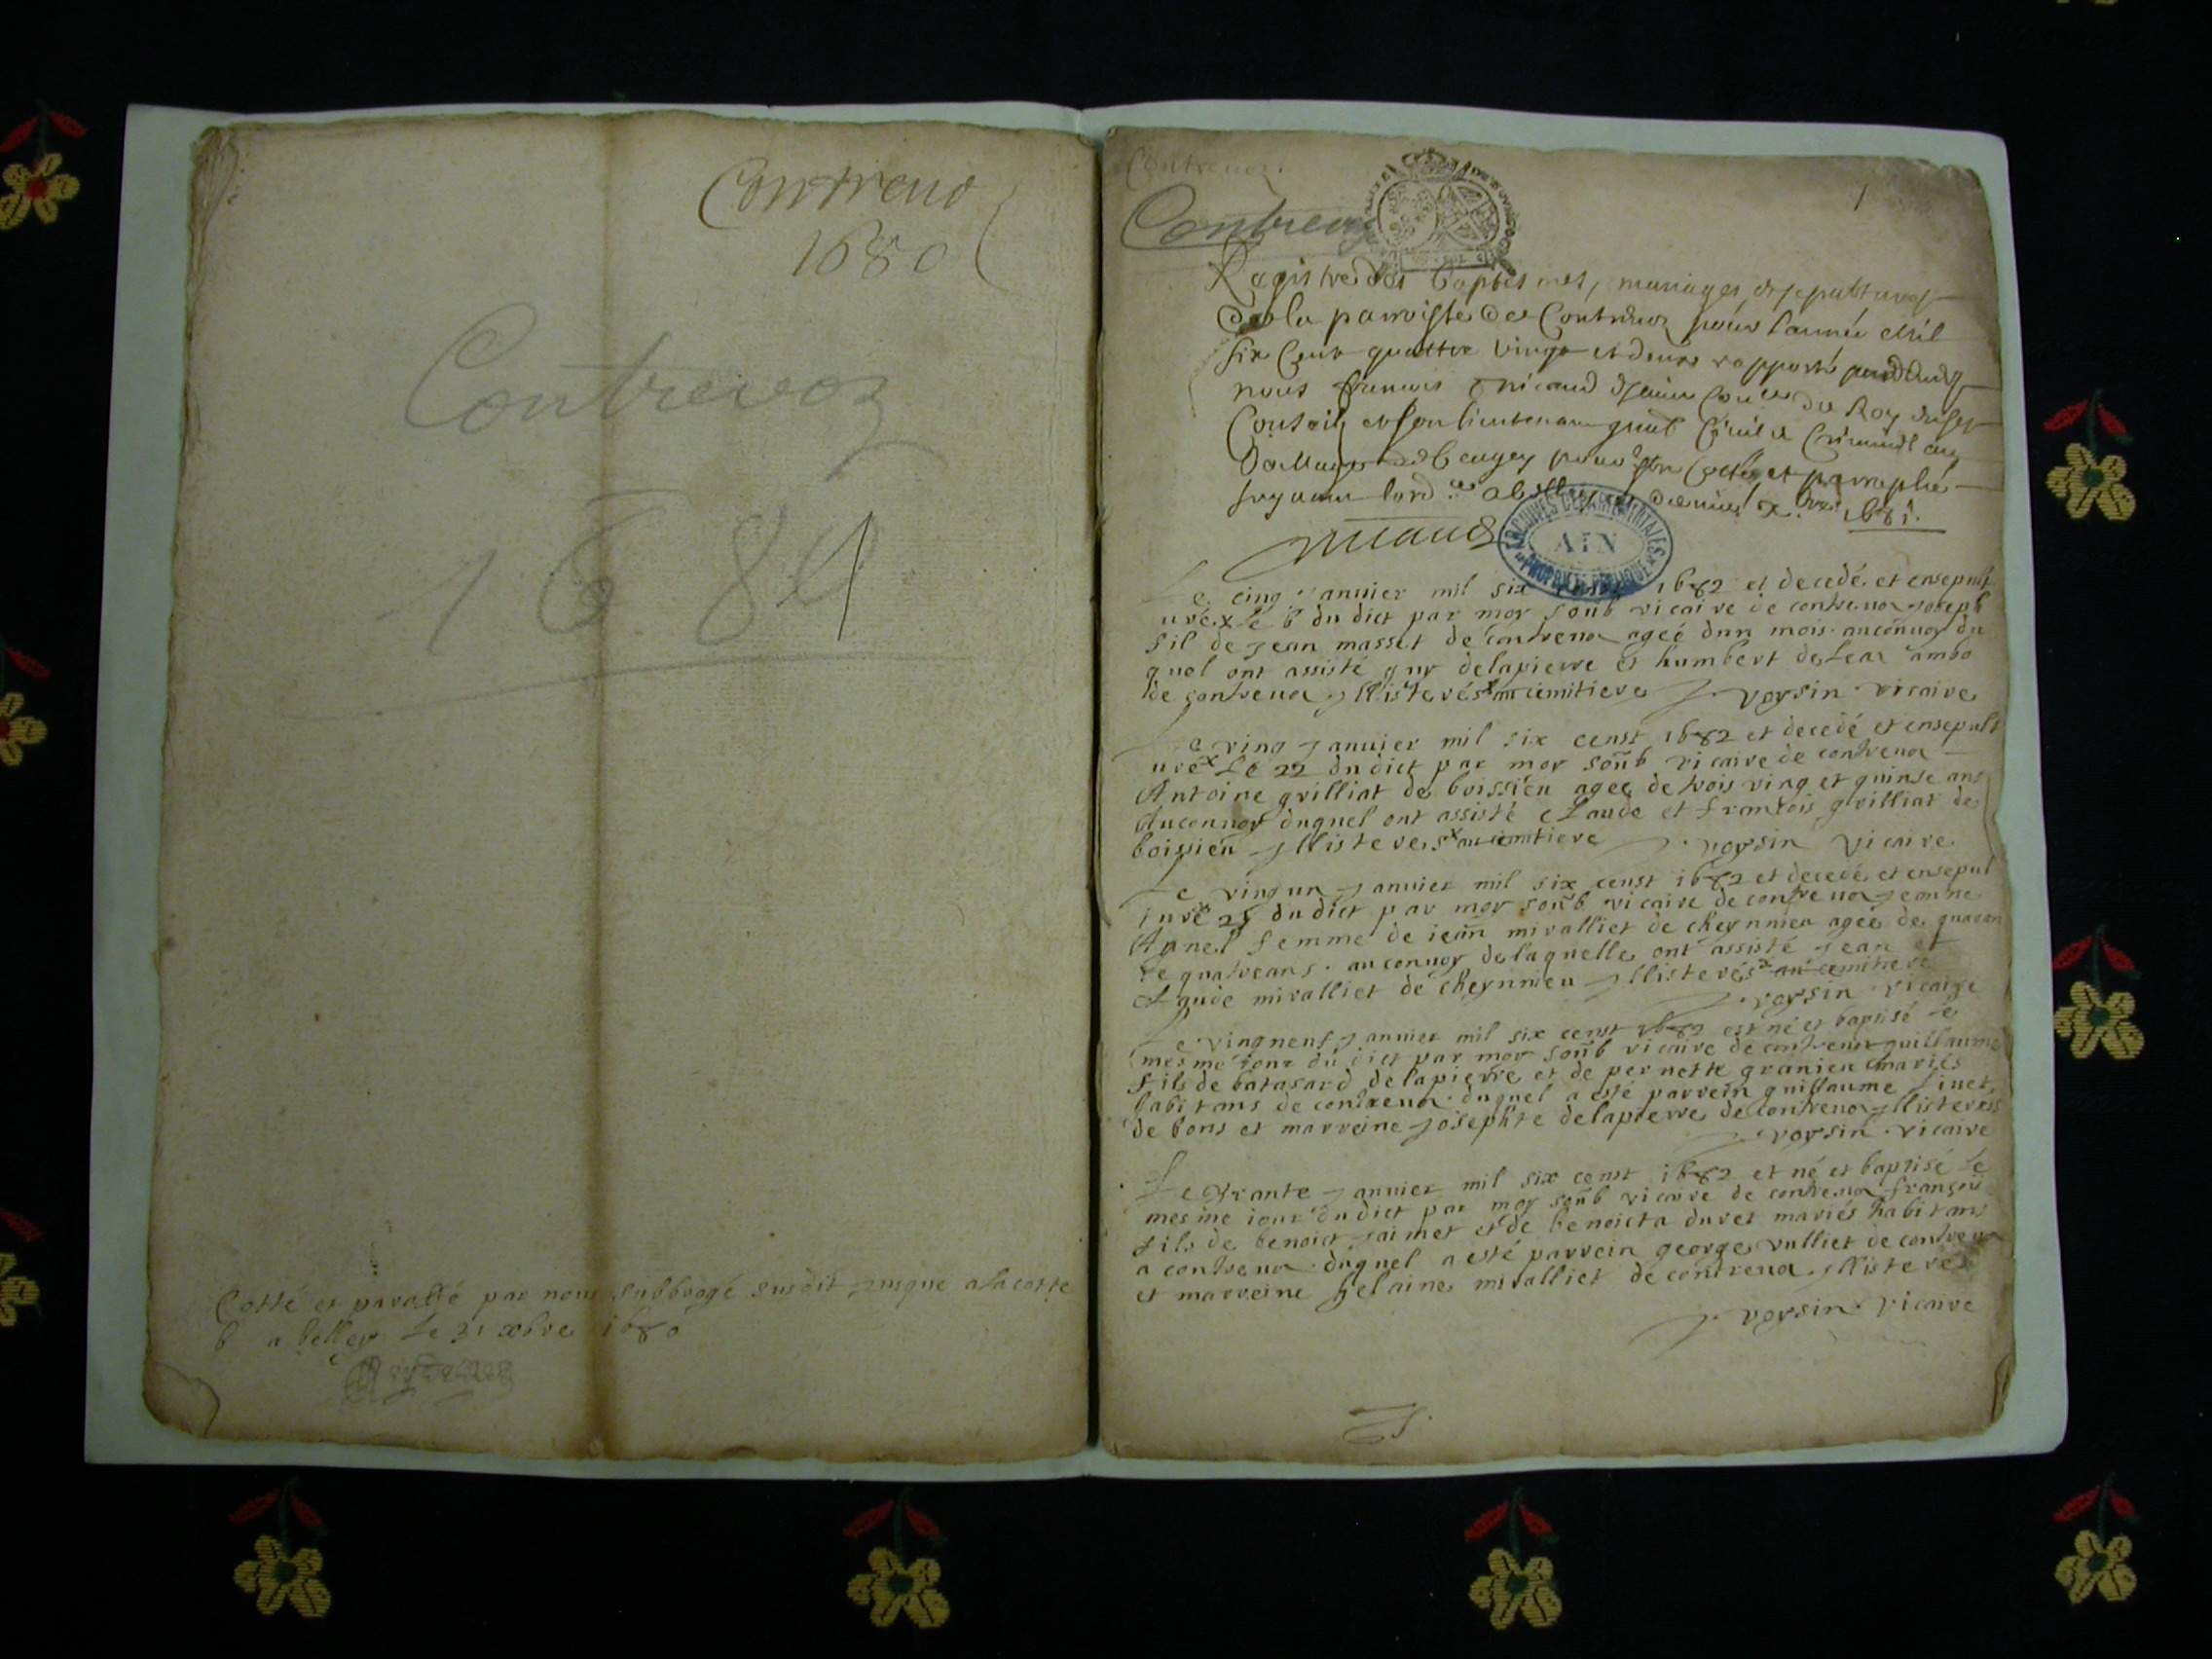 Contrevo
1680
Contrevoz
1681
Cotté et paraffé par nous subbrogé susdit jusque a la cotte
6 a belley le 31 xbre 1680
Contrevoz
1
Contrevoz
Registre des baptesmes, mariages, et sepultures
de la parroisse de Contrevoz pour l'année Mil
six cent quattre vingt et deux rapporté pardevant
nous francois du Roy en ses
Conseils et son lieutenant civil et Criminel au
Baillage de beugey pour estre cotté et parraphé
suyvant lord.ce a 1681.
ARCHIVES DEPARTEMENTALES
AIN
PROPRIETE PUBLIQUE
Le cinq janvier mil six 1682 et decedé et ensepult
uré x le 6 du dict par moy soub vicaire de contrevoz joseph
fil de jean masset de contrevoz ageé dun mois. au convoy du
quel ont assisté guy delapierre et humbert ambo
de contrevoz illisterés x au cemitiere J. voysin vicaire
Le ving janvier mil six censt 1682 et decedé et ensepult
uré x le 22 du dict par moy soub vicaire de contrevoz
Antoine grilliat de boissieu ageé de trois ving et quinse ans
Au convoy duquel ont assisté Claude et francois grilliat de
boissieu illisteres x au cemitiere J. voysin vicaire
Le vingun janvier mil six censt 1682 et decedé et ensepul
turé x du dict par moy soub vicaire de contrevoz jeanne
femme de jean miralliet de cheynnieu ageé de quaran
te quatre ans. au convoy de laquelle ont assisté jean et
Claude miralliet de cheynnieu illisterés x au cemitiere
J. voysin vicaire
Le vingneuf janvier mil six censt 1682 est né et baptisé le
mesme jour du dict par moy soub vicaire de contrevoz guillaume
fils de batasard delapierre et de pernette granieu mariés
habitans de contrevoz. duquel a esté parrein guillaume
de bons et marreine josephte delapierre de contrevoz illisterés
J. voysin vicaire
Le trante janvier mil six censt 1682 et né et baptisé le
mesme jour du dict par moy soub vicaire de contrevoz françois
fils de benoict jaimet et de benoicta duret mariés habitans
a contrevoz. duquel a esté parrein george vulliet de contrevoz
et marreine helaine miralliet de contrevoz. illisterés
J. voysin vicaire